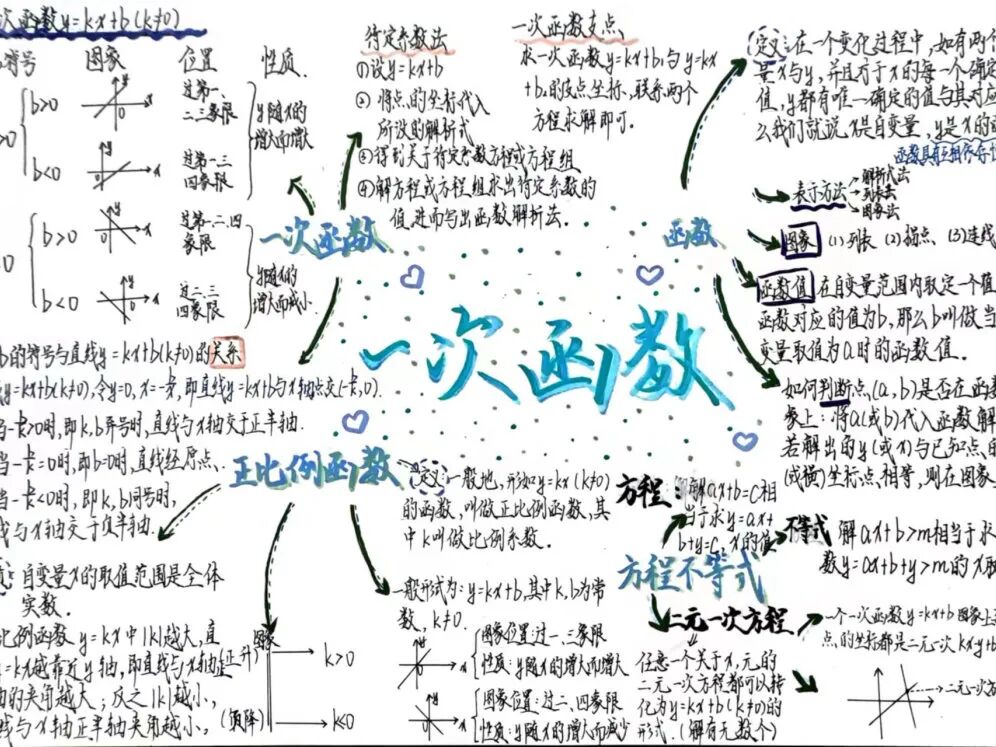 次函数y=kx+b(k≠0)
符号 图象 位置 性质.
b>0
过第一、
二、三象限
y随x的
增大而增大
b<0
过第一、三
四象限
b>0
过第一、二、四
象限
y随x的
增大而减小.
b<0
过二、三
四象限
一次函数
待定系数法
①设y=kx+b
② 将点的坐标代入
所设的解析式
③得到关于待定系数方程或方程组
④解方程或方程组求出待定系数的
值,进而写出函数解析法.
一次函数交点.
求一次函数y=kx+b,与y=kx
+b.的交点坐标,联系两个
方程求解即可.
函数
定义:在一个变化过程中,如有两个
量x与y,并且对于x的每一个确定
值,y都有唯一确定的值与其对应
么我们就说,x是自变量,y是x的
表示方法
解析式法
列表法
图象法
图象 (1)列表 (2)描点、(3)连线
函数值 在自变量范围内取定一个值
函数对应的值为b,那么b叫做当
变量取值为a时的函数值.
如何判断点,(a,b)是否在函数
象上:将a(或b)代入函数解
若解出的y(或x)与已知点的
(或横)坐标点、相等,则在图象
一次函数
b的符号与直线y=kx+b(k≠0)的关系
y=kx+b(k≠0),令y=0,x=-b/k,即直线y=kx+b与x轴点交(-b/k,0).
当-b/k>0时,即k,b异号时,直线与x轴交于正半轴.
当-b/k=0时,即b=0时,直线经原点.
当-b/k<0时,即k,b同号时,
线与x轴交于负半轴.
正比例函数
定义:一般地,形如:y=kx(k≠0)
的函数,叫做正比例函数,其
中k叫做比例系数.
自变量x的取值范围是全体
实数.
比例函数y=kx中|k|越大,直
=kx越靠近y轴,即直线与x轴正
的夹角越大;反之|k|越小,
线与x轴正半轴夹角越小.
图象
(正升) k>0
(负降) k<0
一般形式为:y=kx+b,其中k,b为常
数,k≠0.
图象位置:过一、三象限
性质:y随x的增大而增大
图象位置:过二、四象限
性质:y随x的增大而减少
方程不等式
方程:则解ax+b=c相
当于求y=ax+
b+y=c,x的值
不等式 解ax+b>m相当于求
数y=ax+b+y>m的x取
二元一次方程
任意一个关于x,元的
二元一次方程都可以转
化为y=kx+b(k≠0)的
形式.(解有无数个)
一个一次函数y=kx+b图象上
点的坐标都是二元一次kx+y+b
二元一次方